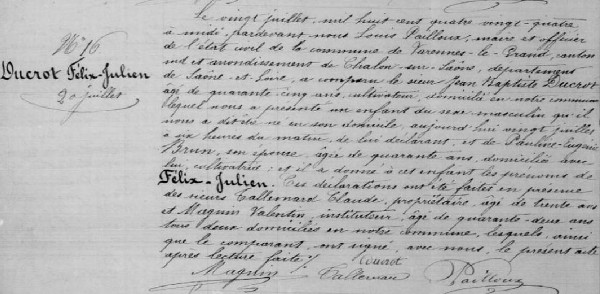 N° 16
Ducrot Félix-Julien
20 juillet
Le vingt juillet, mil huit cent quatre vingt-quatre
à midi, pardevant nous Louis Pailloux, maire et officier
de l'état civil de la commune de Varennes-le-Grand, canton
sud et arrondissement de Chalon-sur-Saône, département
de Saône-et-Loire, a comparu le sieur Jean Baptiste Ducrot
âgé de quarante-cinq ans, cultivateur, domicilié en notre commune
lequel nous a présenté un enfant du sexe masculin qu'il
nous a déclaré né en son domicile, aujourd'hui vingt juillet
à six heures du matin, de lui déclarant, et de Pauline-Eugénie
Brun, son épouse, âgée de quarante ans, domiciliée avec
lui, cultivatrice; et il a donné à cet enfant les prénoms de
Félix-Julien. Ces déclarations ont été faites en présence
des sieurs Tallemard Claude, propriétaire, âgé de trente ans
et Magnin Valentin, instituteur, âgé de quarante-deux ans
tous deux domiciliés en notre commune, lesquels, ainsi
que le comparant, ont signé, avec nous, le présent acte
après lecture faite./.
Ducrot
Magnin Pailloux